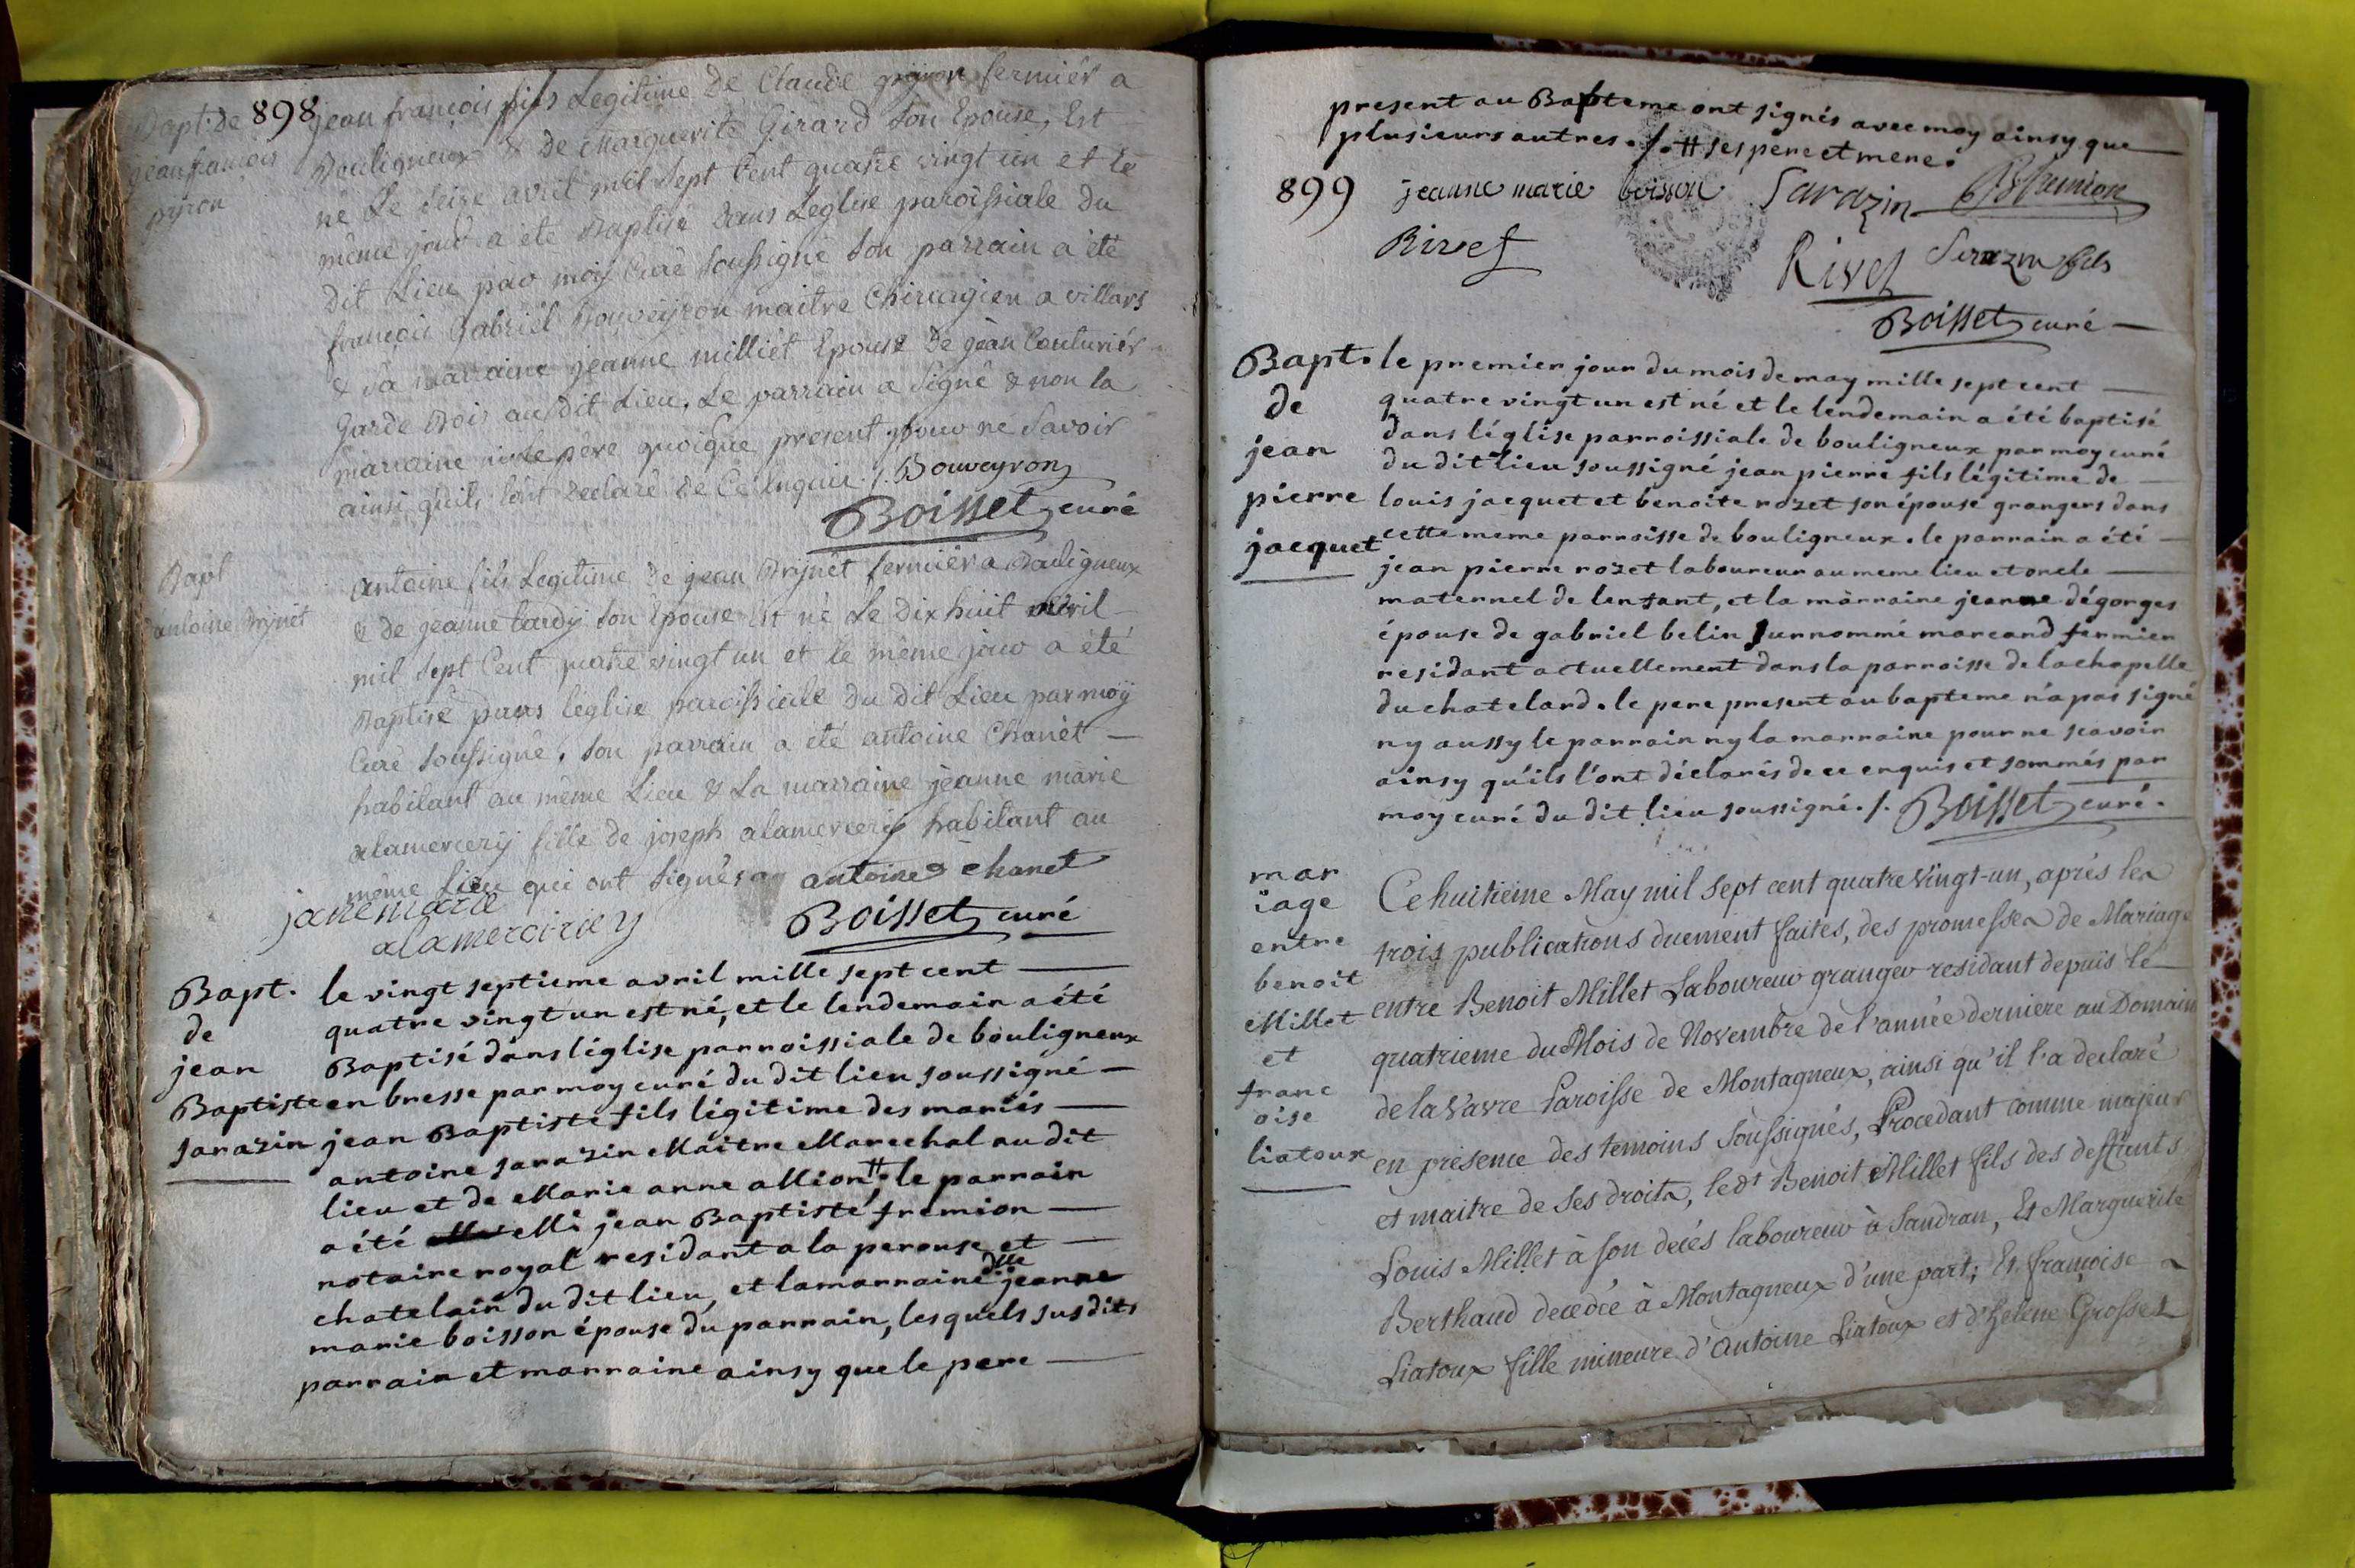 898
Bapt. de
jean francois
pyron
jean françois fils Legitime De Claude pyron fermiér a
Bouligneux & De Marguerite Girard son Epouse, Est
né Le seize avril mil sept Cent quatre vingt un et le
même jour a été Baptisé Dans L'eglise paroissiale Du
Dit Lieu par moy Curé soussigné son parrain a été
françois Gabriél Bouveyron maitre Chirurgien a villars
& sa marraine jeanne milliét Epouse De jean Couturiér
Garde Bois au dit Lieu. Le parrain a signé & non la
marraine ni le père quoique present pour ne savoir
ainsi qu'ils l'ont Declaré De Ce Enquis ./. Bouveyron
Boisset curé
Bapt
d'antoine Brÿnet
antoine fils Legitime De jean Brÿnet fermiér a Bouligneux
& De jeanne tardÿ son Epouse Est né Le Dix huit avril
mil sept Cent quatre vingt un et le même jour a été
Baptisé Dans l'églìse paroissiale Du Dit Lieu par moÿ
Curé soussigné, son parrain a été antoine Chanét
habitant au même Lieu & La marraine jeanne marie
alamercerÿ fille de joseph alamercerÿ habitant au
même Lieu qui ont signés
antoine chanet
jane marie
alamerciriey
Boisset curé
Bapt.
de
jean
Baptiste
sarazin
le vingt septieme avril mille sept cent
quatre vingt un est né, et le lendemain a été
Baptisé dans l'église parroissiale de bouligneux
en bresse par moy curé du dit lieu soussigné
jean Baptiste fils légitime des mariés
antoine sarazin Maitre Marechal au dit
lieu et de Marie anne allion # le parrain
a été Mr jean Baptiste fremion
notaire royal residant a la perouse et
chatelain du dit lieu, et la marraine dlle jeanne
marie boisson épouse du parrain, lesquels susdits
parrain et marraine ainsy que le pere
present au Bapteme ont signés avec moy ainsy que
plusieurs autres ./. # ses pere et mere.
899
jeanne marie boisson Sarazin fremion
Rivet
Rivet Serazin fils
Boisset curé
Bapt.
de
jean
pierre
jacquet
le premier jour du mois de may mille sept cent
quatre vingt un est né et le lendemain a été baptisé
dans l'église parroissiale de bouligneux par moy curé
du dit lieu soussigné jean pierre fils légitime de
louis jacquet et benoite rozet son épouse grangers dans
cette meme parroisse de bouligneux. le parrain a été
jean pierre rozet laboureur au meme lieu et oncle
maternel de lenfant, et la marraine jeanne dégorges
épouse de gabriel belin surnommé marcand fermier
residant actuellement dans la parroisse de la chapelle
du chatelard. le pere present au bapteme n'a pas signé
ny aussy le parrain ny la marraine pour ne scavoir
ainsy qu'ils l'ont déclarés de ce enquis et sommés par
moy curé du dit lieu soussigné ./. Boisset curé.
mar
iage
entre
benoit
Millet
et
franc
oise
liatoux
Ce huitieme May mil sept cent quatre vingt-un, aprés les
trois publications duement faites, des promesses de Mariage
entre Benoit Millet Laboureur granger residant depuis le
quatrieme du Mois de Novembre de l'année derniere au Domaine
de la Vavre Paroisse de Montagneux, ainsi qu'il l'a declaré
en presence des temoins soussignés, Procedant comme majeur
et maitre de ses droits, ledt Benoit Millet fils des deffunts
Louis Millet à son decés laboureur à Sandran, Et Marguerite
Berthaud decedée à Montagneux d'une part; Et françoise
Liatoux fille mineure d'Antoine Liatoux et d'helene Grosset